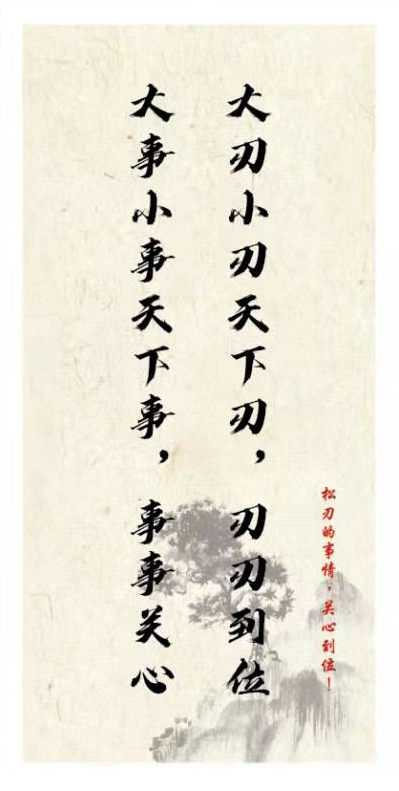 大刃小刃天下刃，刃刃到位
大事小事天下事，事事关心
松刃的事情，关心到位！